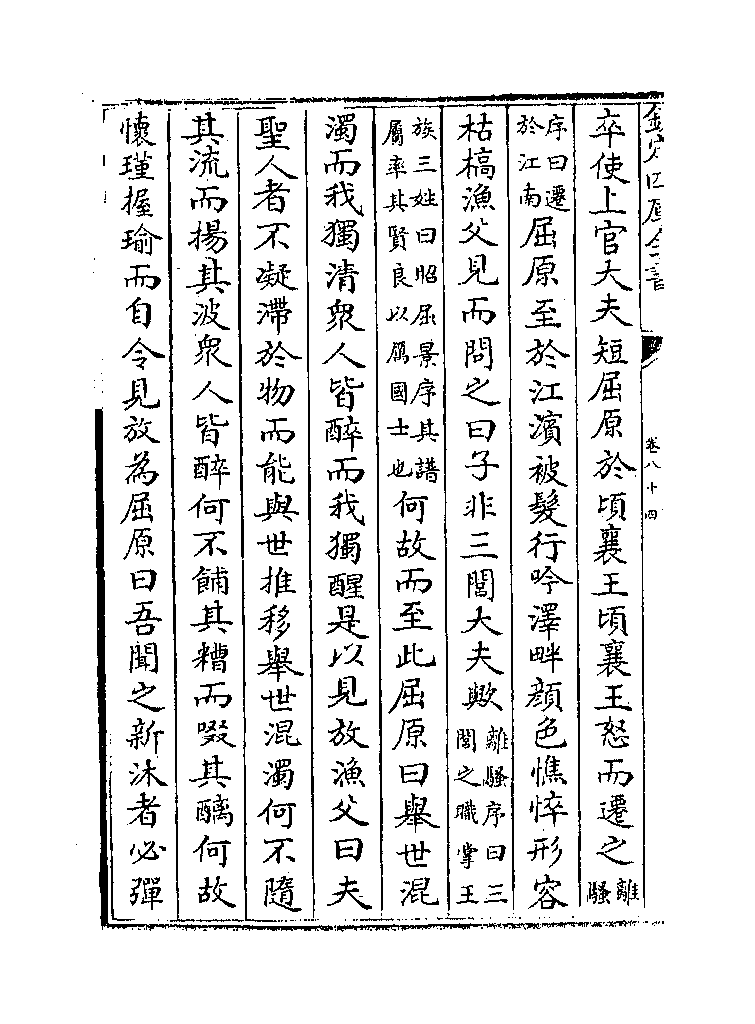 欽定四庫全書
卷八十四
卒使上官大夫短屈原於頃襄王頃襄王怒而遷之離騷
序曰遷於江南屈原至於江濱被髮行吟澤畔顔色憔悴形容
枯槁漁父見而問之曰子非三閭大夫歟離騷序曰三閭之職掌王
族三姓曰昭屈景序其譜屬率其賢良以厲國士也何故而至此屈原曰舉世混
濁而我獨清衆人皆醉而我獨醒是以見放漁父曰夫
聖人者不凝滯於物而能與世推移舉世混濁何不隨
其流而揚其波衆人皆醉何不餔其糟而啜其醨何故
懷瑾握瑜而自令見放為屈原曰吾聞之新沐者必彈